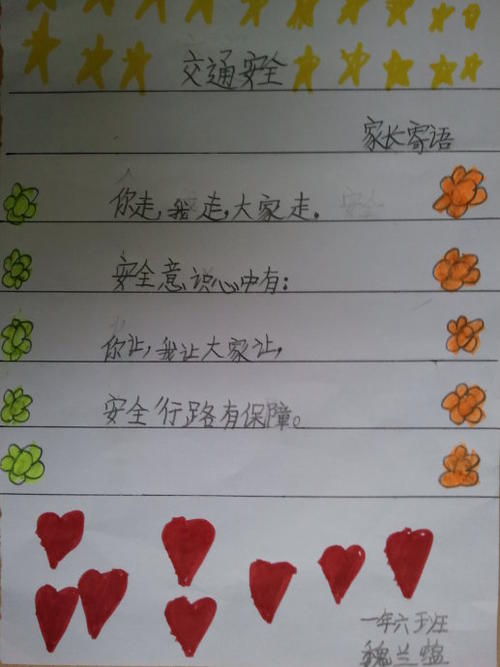 交通安全
家长寄语
你走,我走,大家走。
安全意识心中有:
你让,我让大家让,
安全行路有保障。
一年六班
魏兰